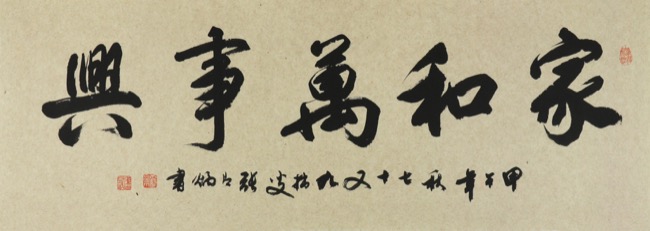 家和萬事興
甲午年秋七十又九叟張炳書